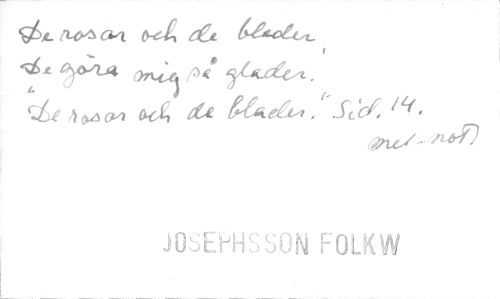 De rosor och de blader,
De göra mig så glader.
"De rosor och de blader." Sid. 14.
mel-not)
JOSEPHSSON FOLKW